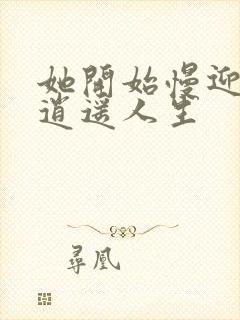 她開始慢迎
逍遥人生
尋凰